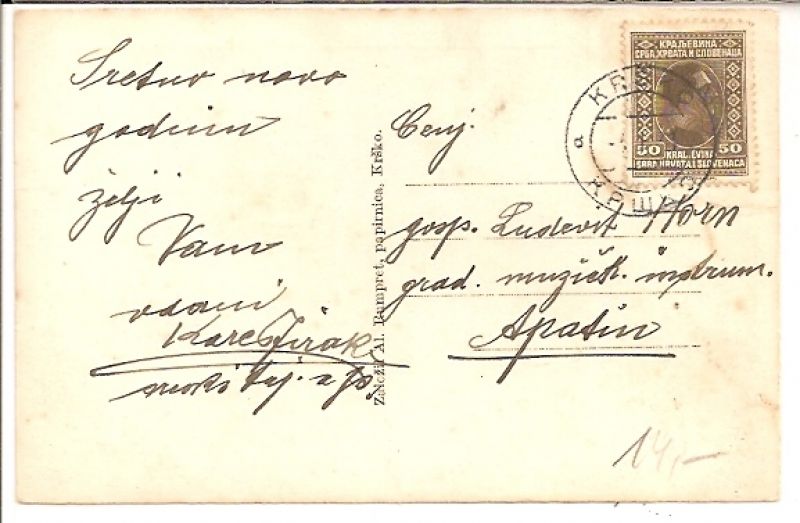 Sretno novo
godinu
želji
Vam
odani
Karel Jirak
Založil Al. Rumpret, papirnica, Krško.
КРАЉЕВИНА
СРБА, ХРВАТА И СЛОВЕНАЦА
50 50
KRALJEVINA
SRBA, HRVATA I SLOVENACA
a
КРШ
Cenj.
gosp. Ludevit Horn
grad. muzičk. instrum.
Apatin
14,-